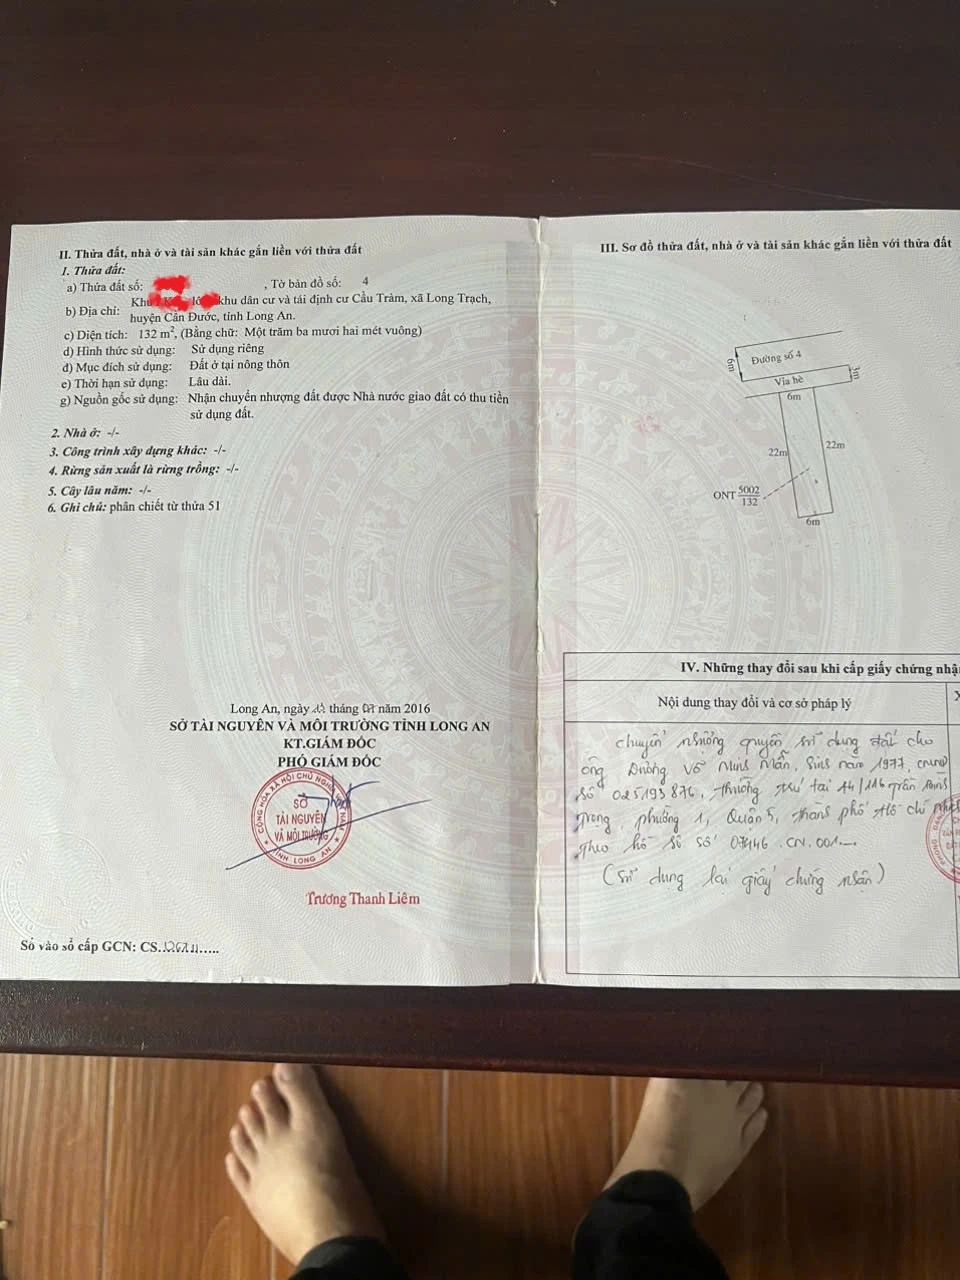 II. Thửa đất, nhà ở và tài sản khác gắn liền với thửa đất
1. Thửa đất:
a) Thửa đất số: , Tờ bản đồ số: 4
b) Địa chỉ: Khu khu dân cư và tái định cư Cầu Tràm, xã Long Trạch,
huyện Cần Đước, tỉnh Long An.
c) Diện tích: 132 m², (Bằng chữ: Một trăm ba mươi hai mét vuông)
d) Hình thức sử dụng: Sử dụng riêng
đ) Mục đích sử dụng: Đất ở tại nông thôn
e) Thời hạn sử dụng: Lâu dài.
g) Nguồn gốc sử dụng: Nhận chuyển nhượng đất được Nhà nước giao đất có thu tiền
sử dụng đất.
2. Nhà ở: -/-
3. Công trình xây dựng khác: -/-
4. Rừng sản xuất là rừng trồng: -/-
5. Cây lâu năm: -/-
6. Ghi chú: phân chiết từ thửa 51
Long An, ngày tháng năm 2016
SỞ TÀI NGUYÊN VÀ MÔI TRƯỜNG TỈNH LONG AN
KT.GIÁM ĐỐC
PHÓ GIÁM ĐỐC
CỘNG HÒA XÃ HỘI CHỦ NGHĨA VIỆT NAM
SỞ
TÀI NGUYÊN
VÀ MÔI TRƯỜNG
TỈNH LONG AN
Trương Thanh Liêm
Số vào sổ cấp GCN: CS.
III. Sơ đồ thửa đất, nhà ở và tài sản khác gắn liền với thửa đất
6m
Đường số 4
Vỉa hè
3m
6m
22m
22m
ONT 5002
132
6m
IV. Những thay đổi sau khi cấp giấy chứng nhậ
Nội dung thay đổi và cơ sở pháp lý
Chuyển nhượng quyền sử dụng đất cho
ông Dương Võ Minh Mẫn, Sinh năm 1977, CMND
số 025193876, thường trú tại 14/116 Trần
Trọng, phường 1, Quận 5, thành phố Hồ Chí Minh
Theo hồ sơ số 07446.CN.001
(Sử dụng lại giấy chứng nhận)